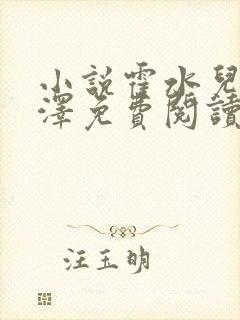 小說霍水兒
澤免費閱讀
汪玉明